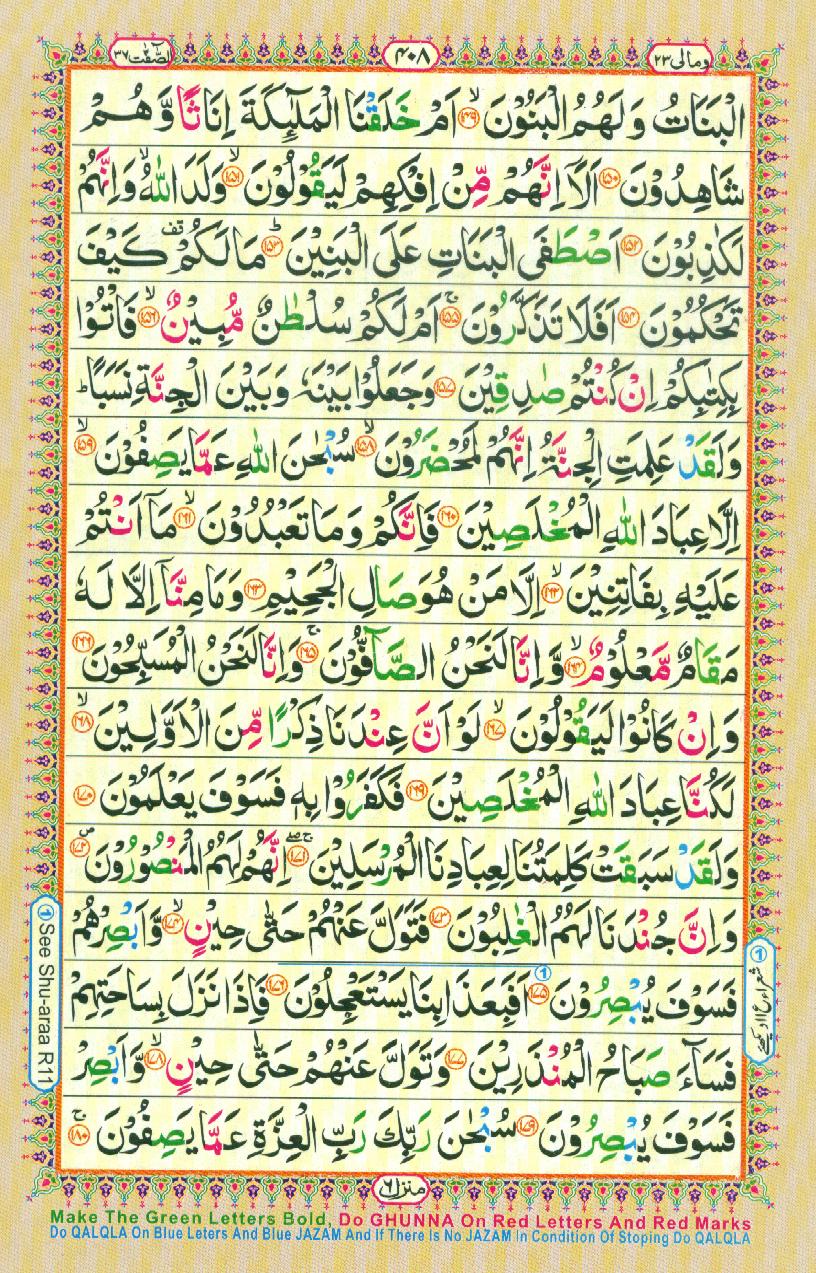 وما لی ۲۳
۴۰۸
الصّٰفّٰت ۳۷
الْبَنَاتُ وَلَهُمُ الْبَنُوْنَ ۙ﴿۱۴۹﴾ اَمْ خَلَقْنَا الْمَلٰٓئِكَةَ اِنَاثًا وَّهُمْ
شَاهِدُوْنَ ﴿۱۵۰﴾ اَلَاۤ اِنَّهُمْ مِّنْ اِفْكِهِمْ لَيَقُوْلُوْنَ ۙ﴿۱۵۱﴾ وَلَدَ اللّٰهُ ۙ وَاِنَّهُمْ
لَكٰذِبُوْنَ ﴿۱۵۲﴾ اَصْطَفَى الْبَنَاتِ عَلَى الْبَنِيْنَ ؕ﴿۱۵۳﴾ مَا لَكُمْ قف كَيْفَ
تَحْكُمُوْنَ ﴿۱۵۴﴾ اَفَلَا تَذَكَّرُوْنَ ۚ﴿۱۵۵﴾ اَمْ لَكُمْ سُلْطٰنٌ مُّبِيْنٌ ۙ﴿۱۵۶﴾ فَاْتُوْا
بِكِتٰبِكُمْ اِنْ كُنْتُمْ صٰدِقِيْنَ ﴿۱۵۷﴾ وَجَعَلُوْا بَيْنَهٗ وَبَيْنَ الْجِنَّةِ نَسَبًا ؕ
وَلَقَدْ عَلِمَتِ الْجِنَّةُ اِنَّهُمْ لَمُحْضَرُوْنَ ۙ﴿۱۵۸﴾ سُبْحٰنَ اللّٰهِ عَمَّا يَصِفُوْنَ ۙ﴿۱۵۹﴾
اِلَّا عِبَادَ اللّٰهِ الْمُخْلَصِيْنَ ﴿۱۶۰﴾ فَاِنَّكُمْ وَمَا تَعْبُدُوْنَ ۙ﴿۱۶۱﴾ مَاۤ اَنْتُمْ
عَلَيْهِ بِفَاتِنِيْنَ ۙ﴿۱۶۲﴾ اِلَّا مَنْ هُوَ صَالِ الْجَحِيْمِ ﴿۱۶۳﴾ وَمَا مِنَّاۤ اِلَّا لَهٗ
مَقَامٌ مَّعْلُوْمٌ ۙ﴿۱۶۴﴾ وَّاِنَّا لَنَحْنُ الصَّآفُّوْنَ ۚ﴿۱۶۵﴾ وَاِنَّا لَنَحْنُ الْمُسَبِّحُوْنَ ﴿۱۶۶﴾
وَاِنْ كَانُوْا لَيَقُوْلُوْنَ ۙ﴿۱۶۷﴾ لَوْ اَنَّ عِنْدَنَا ذِكْرًا مِّنَ الْاَوَّلِيْنَ ۙ﴿۱۶۸﴾
لَكُنَّا عِبَادَ اللّٰهِ الْمُخْلَصِيْنَ ﴿۱۶۹﴾ فَكَفَرُوْا بِهٖ فَسَوْفَ يَعْلَمُوْنَ ﴿۱۷۰﴾
وَلَقَدْ سَبَقَتْ كَلِمَتُنَا لِعِبَادِنَا الْمُرْسَلِيْنَ ۚۖ﴿۱۷۱﴾ اِنَّهُمْ لَهُمُ الْمَنْصُوْرُوْنَ ۪﴿۱۷۲﴾
وَاِنَّ جُنْدَنَا لَهُمُ الْغٰلِبُوْنَ ﴿۱۷۳﴾ فَتَوَلَّ عَنْهُمْ حَتّٰى حِيْنٍ ۙ﴿۱۷۴﴾ وَّاَبْصِرْهُمْ
فَسَوْفَ يُبْصِرُوْنَ ﴿۱۷۵﴾ ① اَفَبِعَذَابِنَا يَسْتَعْجِلُوْنَ ﴿۱۷۶﴾ فَاِذَا نَزَلَ بِسَاحَتِهِمْ
فَسَآءَ صَبَاحُ الْمُنْذَرِيْنَ ﴿۱۷۷﴾ وَتَوَلَّ عَنْهُمْ حَتّٰى حِيْنٍ ۙ﴿۱۷۸﴾ وَّاَبْصِرْ
فَسَوْفَ يُبْصِرُوْنَ ﴿۱۷۹﴾ سُبْحٰنَ رَبِّكَ رَبِّ الْعِزَّةِ عَمَّا يَصِفُوْنَ ۚ﴿۱۸۰﴾
① شعراء ع۱۱ دیکھئے
① See Shu-araa R11
منزل ۶
Make The Green Letters Bold, Do GHUNNA On Red Letters And Red Marks
Do QALQLA On Blue Leters And Blue JAZAM And If There Is No JAZAM In Condition Of Stoping Do QALQLA